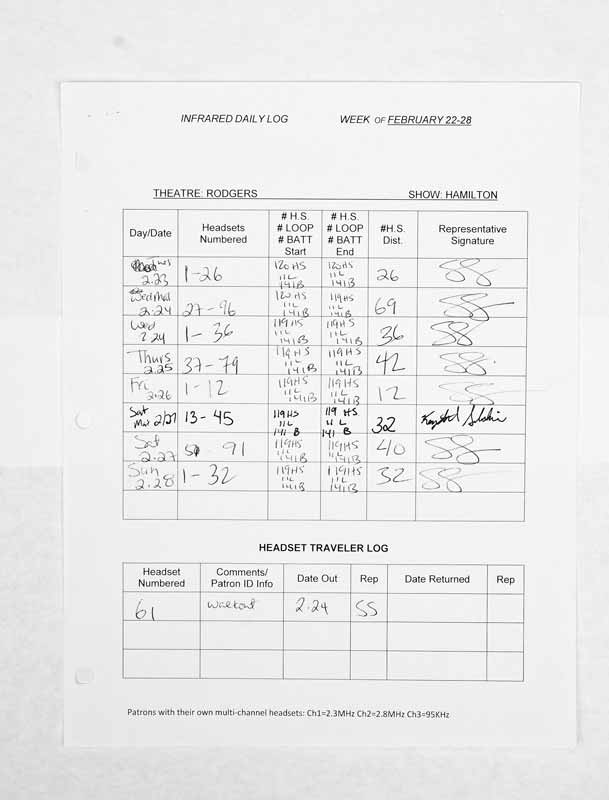 INFRARED DAILY LOG WEEK OF FEBRUARY 22-28
THEATRE: RODGERS SHOW: HAMILTON
Day/Date Headsets Numbered # H.S. # LOOP # BATT Start # H.S. # LOOP # BATT End #H.S. Dist. Representative Signature
Tues 2.23 1-26 120HS 11L 141B 120HS 11L 141B 26 SS
Wed Mat 2.24 27-96 120HS 11L 141B 119HS 11L 141B 69 SS
Wed 2.24 1-36 119HS 11L 141B 119HS 11L 141B 36 SS
Thurs 2.25 37-79 119HS 11L 141B 119HS 11L 141B 42 SS
Fri 2.26 1-12 119HS 11L 141B 119HS 11L 141B 12 SS
Sat Mat 2/27 13-45 119HS 11L 141 B 119 HS 11 L 141 B 32
Sat 2.27 - 91 119HS 11L 141B 119HS 11L 141B 40 SS
Sun 2.28 1-32 119HS 11L 141B 119HS 11L 141B 32 SS
HEADSET TRAVELER LOG
Headset Numbered Comments/ Patron ID Info Date Out Rep Date Returned Rep
61 walkout 2.24 SS
Patrons with their own multi-channel headsets: Ch1=2.3MHz Ch2=2.8MHz Ch3=95KHz